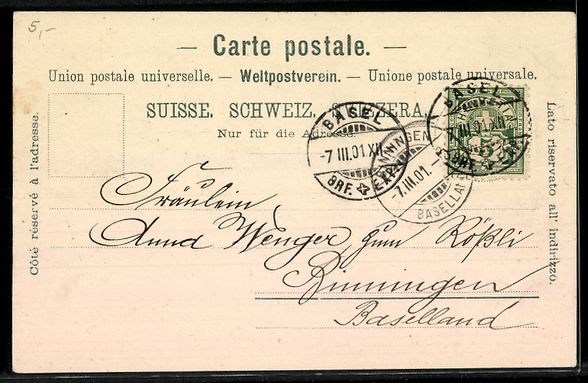 5,-
— Carte postale. —
Union postale universelle. — Weltpostverein. — Unione postale universale.
SUISSE. SCHWEIZ. SVIZZERA.
Nur für die Adresse.
Côté réservé à l'adresse.
Lato riservato all' indirizzo.
BASEL
-7 III.01.XII
BRF. EXP.
BINNINGEN
-7.III.01.-
BASELLAND
BASEL
-7 III.01.XII
BRF. EXP.
5
Fräulein
Anna Wenger zum Rößli
Binningen
Baselland